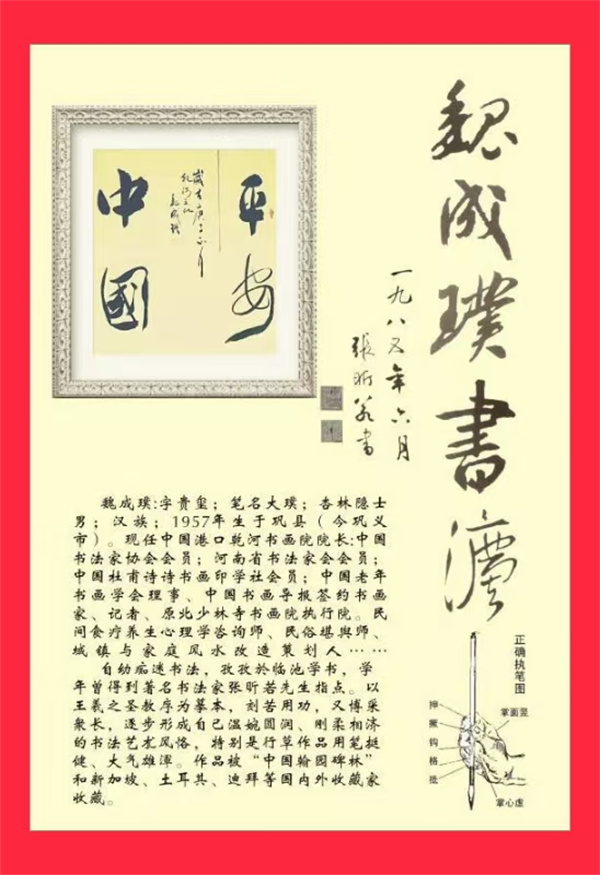 魏成璞書法
一九八五年六月
張昕若書
平安
中國
魏成璞:字贵玺；笔名大璞；杏林隐士
男；汉族；1957年生于巩县（今巩义
市）。现任中国港口乾河书画院院长;中国
书法家协会会员；河南省书法家会会员；
中国杜甫诗诗书画印学社会员；中国老年
书画学会理事、中国书画导报签约书画
家、记者、原北少林寺书画院执行院。民
间食疗养生心理学咨询师、民俗堪舆师、
城镇与家庭风水改造策划人……
自幼痴迷书法，孜孜於临池学书，学
年曾得到著名书法家张昕若先生指点。以
王羲之圣教序为摹本，刻苦用功，又博采
众长，逐步形成自已温婉圆润、刚柔相济
的书法艺术风格，特别是行草作品用笔挺
健、大气雄潭。作品被“中国翰园碑林”
和新加坡、土耳其、迪拜等国内外收藏家
收藏。
正确执笔图
掌面竖
押
撅
钩
格
抵
掌心虚